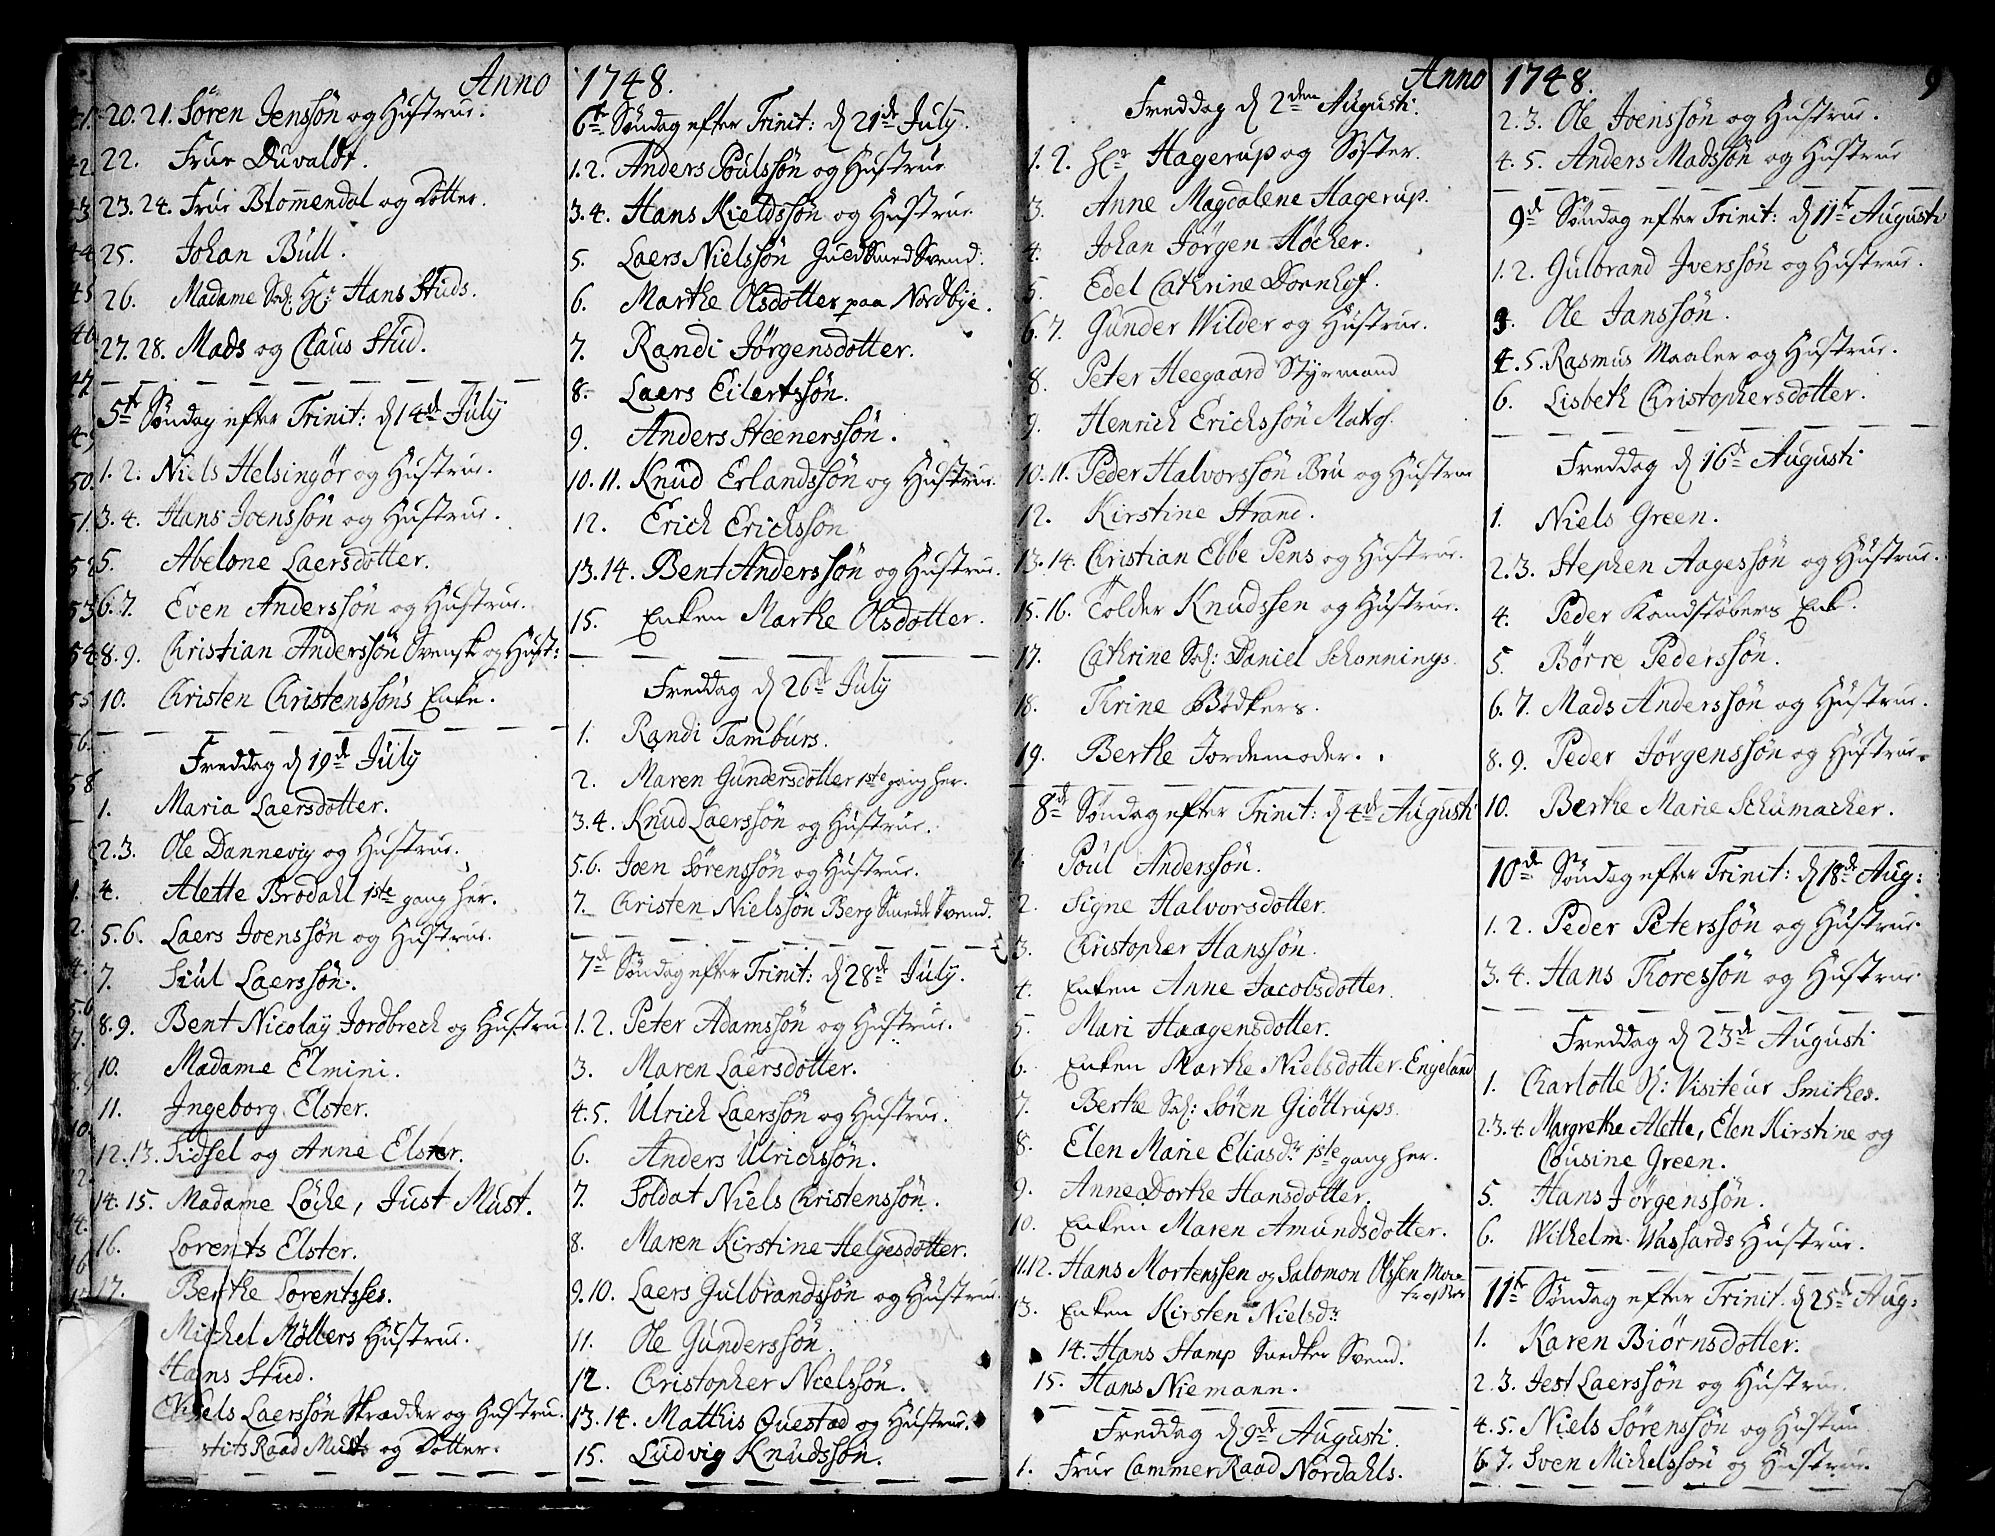 Anno
20. 21. Sören Jenssön og Hustrue.
22. Frue Duvaldt.
23. 24. Frue Blom̄endal og Dotter.
25. Johan Bull.
26. Madame Sal: Hr: Hans Studs.
27. 28. Mads og Claus Stud.
5te Söndag efter Trinit: d 14de July
1. 2. Niels Helsingör og Hustrue.
3. 4. Hans Joenssön og Hustrue.
5. Abelone Laersdotter.
6. 7. Even Anderssön og Hustrue.
8. 9. Christian Anderssön Svensk og Hust:
10. Christen Christenssöns Enke.
Freddag d 19de July
1. Maria Laersdotter.
2. 3. Ole Dannevig og Hustrue.
4. Alette Brodahl 1ste gang her.
5. 6. Laers Joenssön og Hustrue.
7. Siul Laerssön.
8. 9. Bent Nicolaÿ Jordbrech og Hustru
10. Madame Elmini.
11. Ingeborg Elster.
12. 13. Sidsel og Anne Elster.
14. 15. Madame Löche, Just Must.
16. Lorents Elster.
17. Berthe Lorentsses.
Michel Möllers Hustrue.
Hans Stud.
Niels Laerssön Skrædder og Hustrue.
stits Raad Musts og Dotter.
1748.
6te Söndag efter Trinit: d 21de July.
1. 2. Anders Poulssön og Hustrue
3. 4. Hans Kieldssön og Hustrue.
5. Laers Nielssön Guldsmed Svend.
6. Marthe Olsdotter paa Nordbye.
7. Randi Jörgensdotter.
8. Laers Eilertssön.
9. Anders Steenerssön.
10. 11. Knud Erlandssön og Hustrue.
12. Erich Erichssön
13. 14. Bent Anderssön og Hustrue.
15. Enken Marthe Olsdotter.
Freddag d 26de July
1. Randi Tamburs.
2. Maren Gundersdotter 1ste gang her.
3. 4. Knud Laerssön og Hustrue.
5. 6. Joen Sörenssön og Hustrue.
7. Christen Nielssön Berg Smedde Svend.
7de Söndag efter Trinit: d 28de July.
1. 2. Peter Adamssön og Hustrue.
3. Maren Laersdotter.
4. 5. Ulrich Laerssön og Hustrue.
6. Anders Ulrichssön.
7. Soldat Niels Christenssön.
8. Maren Kirstine Helgesdotter.
9. 10. Laers Gulbrandssön og Hustrue.
11. Ole Gunderssön.
12. Christopher Nielssön.
13. 14. Matthis Questad og Hustrue.
15. Ludvig Knudssön.
Anno
Freddag d 2den Augusti.
1. 2. Hr Hagerup og Söster.
3. Anne Magdalene Hagerup.
4. Johan Jörgen Höcher.
5. Edel Cathrine Dornhof.
6. 7. Gunder Wilder og Hustrue.
8. Peter Heegaard Styrmand
9. Henrich Erichssön
10. 11. Peder Halvorssön Bru og Hustrue
12. Kirstine Strand.
13. 14. Christian Ebbe Pens og Hustrue.
15. 16. Tolder Knudssen og Hustrue.
17. Cathrine Sal: Daniel Schonnings.
18. Trine Bödkers.
19. Berthe Jordemoder.
8de Söndag efter Trinit: d 4de Augusti
1. Poul Anderssön.
2. Signe Halvorsdotter.
3. Christopher Hanssön.
4. Enken Anne Jacobsdotter.
5. Mari Haagensdotter.
6. Enken Marthe Nielsdotter. Engeland
7. Berthe Sal: Sören Giöttrups.
8. Elen Marie Eliasdr 1ste gang her.
9. Anne Dorthe Hansdotter.
10. Enken Maren Amundsdotter.
11. 12. Hans Mortenssen og Salomon Olssen
13. Enken Kirsten Nielsdr
14. Hans Stamp Snedker Svend.
15. Hans Niemann.
Freddag d 9de Augusti.
1. Frue Cammer Raad Nordahls.
1748.
9
2. 3. Ole Joenssön og Hustrue.
4. 5. Anders Madssön og Hustrue
9de Söndag efter Trinit: d 11te Augusti
1. 2. Gulbrand Iverssön og Hustrue.
3. Ole Janssön.
4. 5. Rasmus Maaler og Hustrue.
6. Lisbeth Christophersdotter.
Freddag d 16de Augusti
1. Niels Green.
2. 3. Stephen Aagessön og Hustrue.
4. Peder Kandstöbers Enk.
5. Börre Pederssön.
6. 7. Mads Anderssön og Hustrue.
8. 9. Peder Jörgenssön og Hustrue.
10. Berthe Marie Schumacher.
10de Söndag efter Trinit: d 18de Aug:
1. 2. Peder Peterssön og Hustrue.
3. 4. Hans Thoressön og Hustrue
Freddag d 23de Augusti
1. Charlotte Sl: Visiteur Smithes.
2. 3. 4. Margrethe Alette, Elen Kirstine og
Cousine Green.
5. Hans Jörgenssön.
6. Wilhelm Wassards Hustrue.
11te Söndag efter Trinit. d 25de Aug:
1. Karen Biörnsdotter.
2. 3. Jest Laerssön og Hustrue.
4. 5. Niels Sörenssön og Hustru
6. 7. Sven Michelssön og Hustrue.